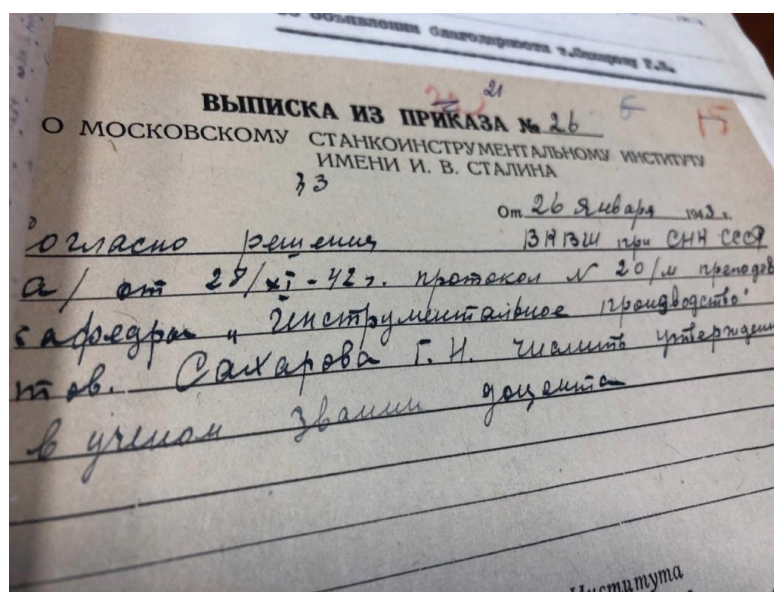 об объявлении благодарности т.Сахарову Г.Н.
21
ВЫПИСКА ИЗ ПРИКАЗА № 26
15
О МОСКОВСКОМУ СТАНКОИНСТРУМЕНТАЛЬНОМУ ИНСТИТУТУ
ИМЕНИ И. В. СТАЛИНА
§ 3
От 26 Января 1943 г.
огласно решения ВКВШ при СНК СССР
а/ от 28/XI-42г. протокол N 20/м преподав
кафедры „Инструментальное производство"
тов. Сахарова Г. Н. числить утвержден
в ученом звании доцента
Института